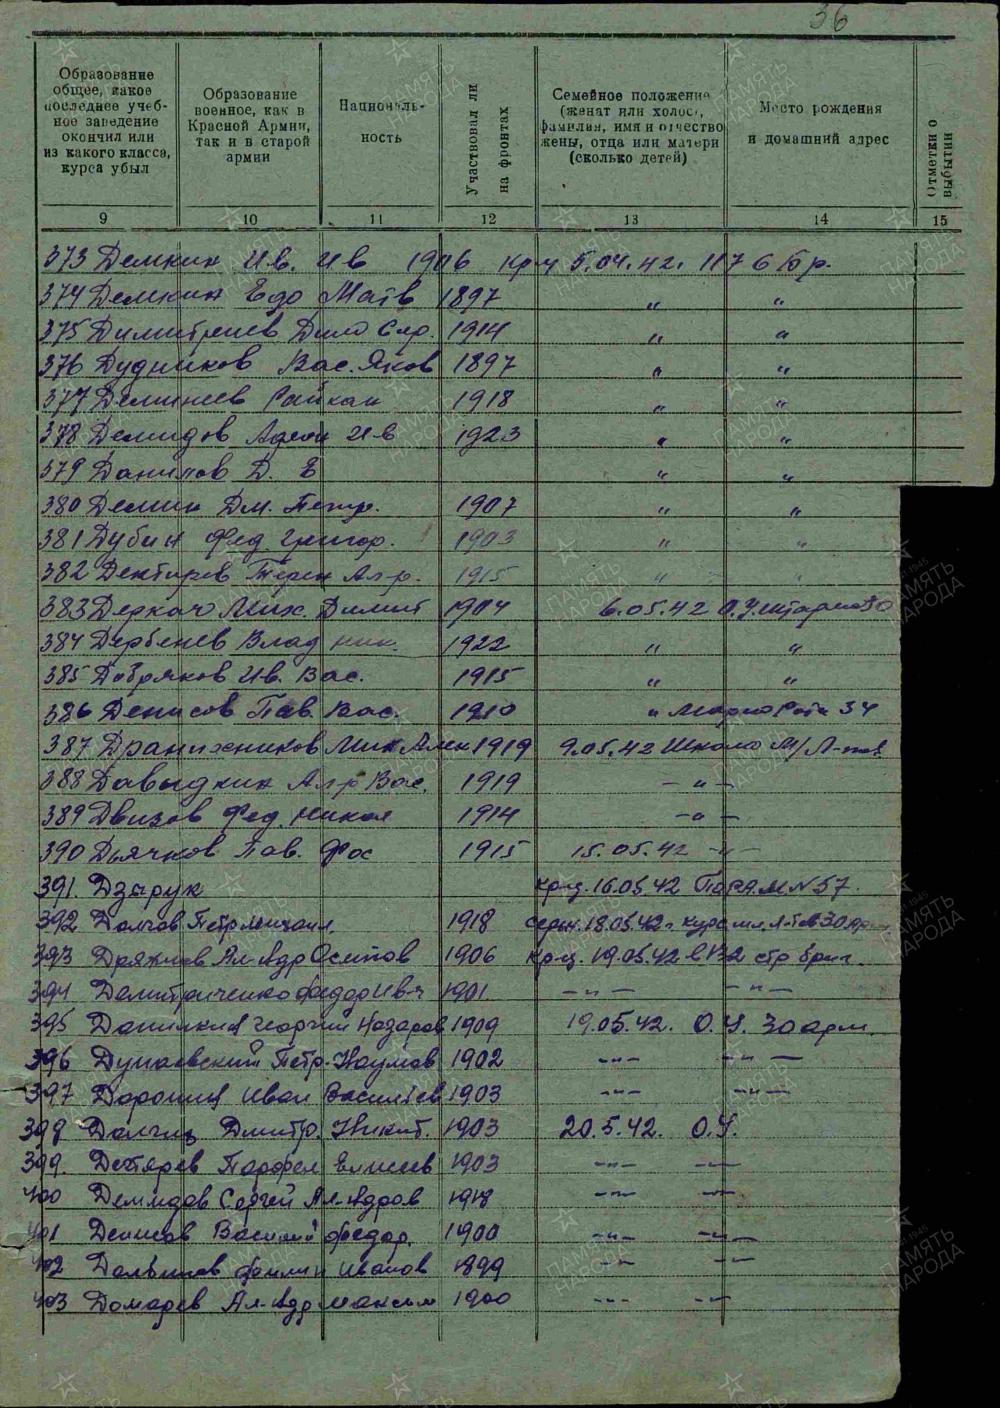 36
Образование
общее, какое
последнее учеб-
ное заведение
окончил или
из какого класса,
курса убыл
Образование
военное, как в
Красной Армии,
так и в старой
армии
Националь-
ность
Участвовал ли
на фронтах
Семейное положение
(женат или холост,
фамилия, имя и отчество
жены, отца или матери
(сколько детей)
Место рождения
и домашний адрес
Отметки о
выбытии
9 10 11 12 13 14 15
373 Демкин Ив. Ив 1906 кр-ц 5.04.42. 1176 Бр.
374 Демкин Едо Матв 1897 " "
375 Димитриев Дмо Сер. 1914 " "
376 Дудников Вас. Яков 1897 " "
377 1918 " "
378 Демидов Ив 1923 " "
379 Данилов Д. Е " "
380 Демин Дм. Петр. 1907 " "
381 Дубин Фед. Григор. 1903 " "
382 Дектирев Терен Алр. 1915 " "
383 Деркач Мих. Димит 1904 6.05.42 О.У.
384 Дербенев Влад Ник. 1922 " "
385 Добряков Ив. Вас. 1915 " "
386 Денисов Пав. Вас. 1910 " 34
387 Драничников Мих 1919 9.05.42 Школа М/Л-тов
388 Давыдкин Алр Вас. 1919 - " -
389 Двизов Фед. Никол 1914 - " -
390 Дьячков Пав. Фос 1915 15.05.42 - " -
391. Дзарук кр-ц. 16.05.42 N 57.
392 Долгов Петр Михаил. 1918 18.05.42 г. курс мл. л-тов 30 арм
393 Дряжнев Ал-др Осипов 1906 кр-ц. 19.05.42 в 132 стр бриг.
394 Демитриченко Федор Ив-ч 1901 - " - - " -
395 Данилкин Георгий Назаров 1909 19.05.42. О.У. 30 арм.
396 Дунаевский Петр. Наумов 1902 - " - - " -
397 Доронин Иван Васильев 1903 - " - - " -
398 Долгих Дмитр. Никит. 1903 20.5.42. О.У.
399. Дегтярев Парфел Елисеев 1903 - " - - " -
400 Демидов Сергей Ал-дров 1918 - " - - " -
401 Денисов Василий Федор. 1900 - " - - " -
402 Иванов 1899 - " - - " -
403 Домарев Ал-др Максим 1900 - " - - " -
ПАМЯТЬ
НАРОДА